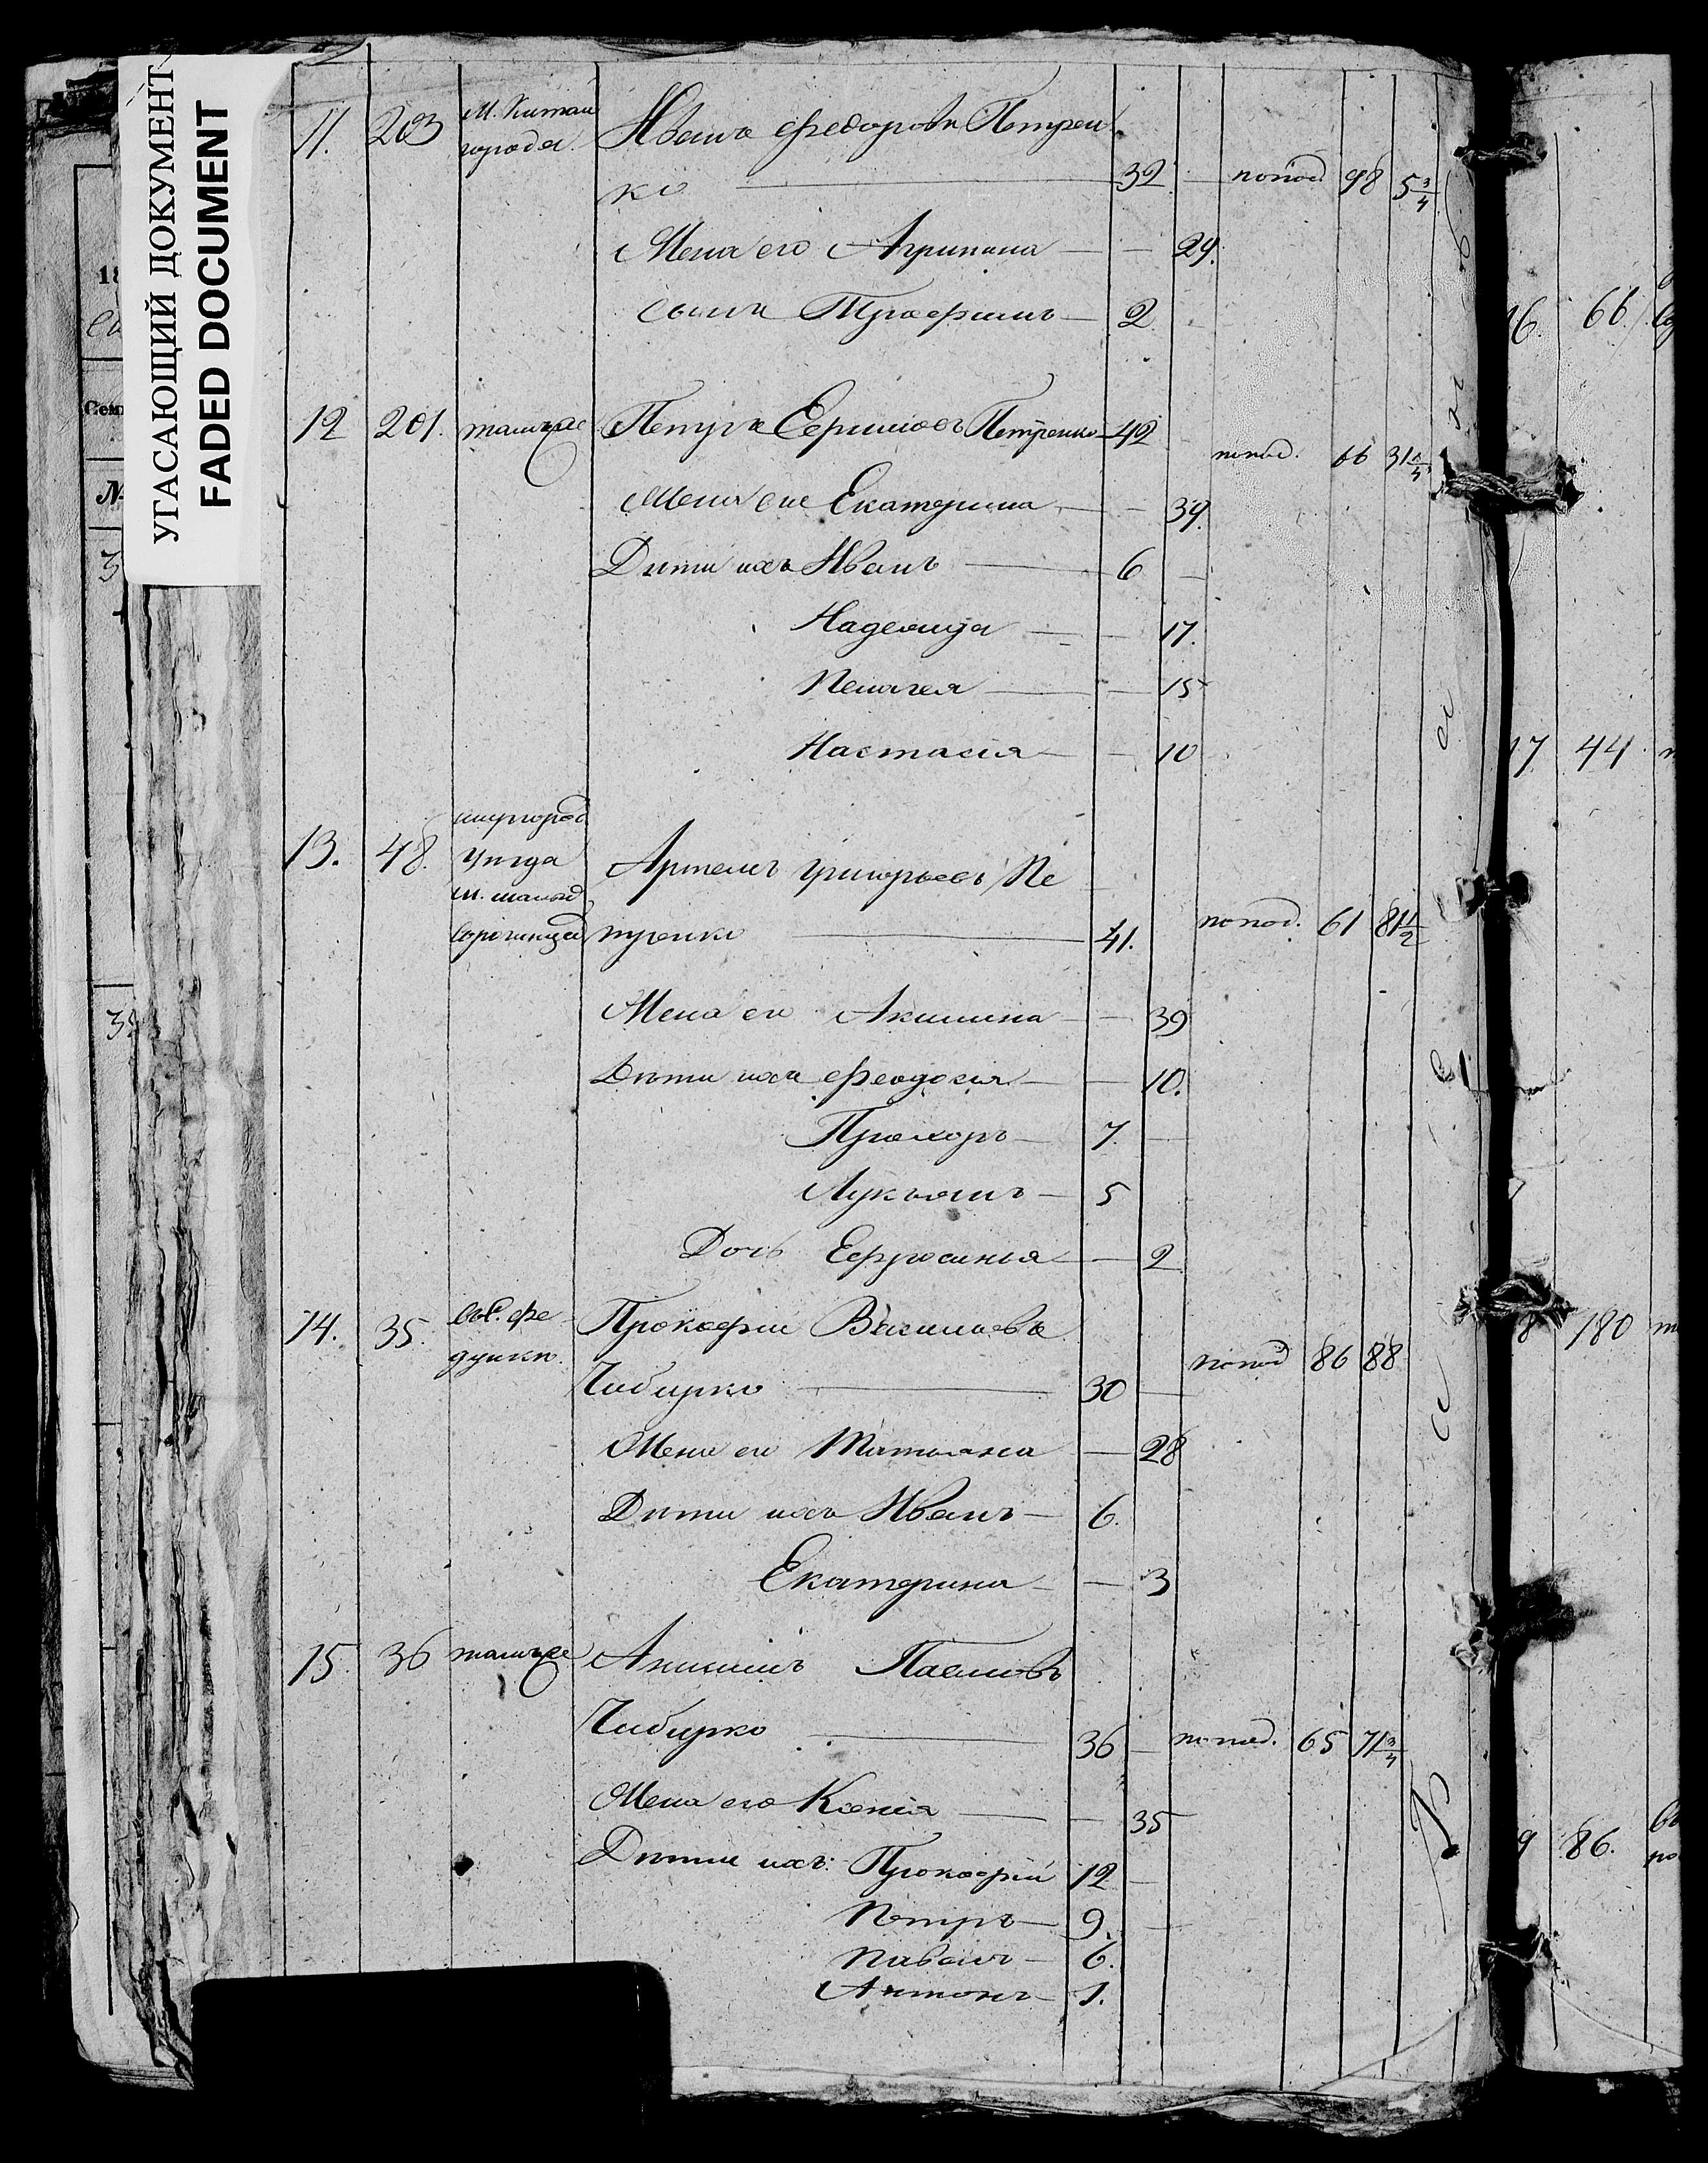 УГАСАЮЩИЙ ДОКУМЕНТ
FADED DOCUMENT
11. 203 М. Китай Иванъ Федоровъ Петрен
города. ко 32 по под 98 5 3/4
Жена его Агрипина 29.
сынъ Трофимъ 2
12 201. тамъже Петръ Ефимовъ Петренко 42 по под. 66 31
Жена его Екатерина 39.
Дѣти ихъ Иванъ 6
Надежда 17.
Пелагея 15
Настасія 10
13. 48. миргород
уѣзда Артемъ Григорьевъ Пе
сорочинца тренко 41. по под. 61 81 1/2
Жена его Акилина 39
Дѣти ихъ Феодосія 10.
Прохоръ 7.
Лукьянъ 5
Дочь Ефросинья 2
14. 35. Прокофій Васильевъ
Чабирко 30 по под 86 88
Жена его Татьяна 28
Дѣти ихъ Иванъ 6.
Екатерина 3
15. 36 тамъже Анисимъ Павловъ
Чабирко 36 по под. 65 71 3/4
Жена его Ксенія 35
Дѣти ихъ: Прокофій 12
Петръ 9.
Павелъ 6.
Антонъ 1.
66
44
180
86.